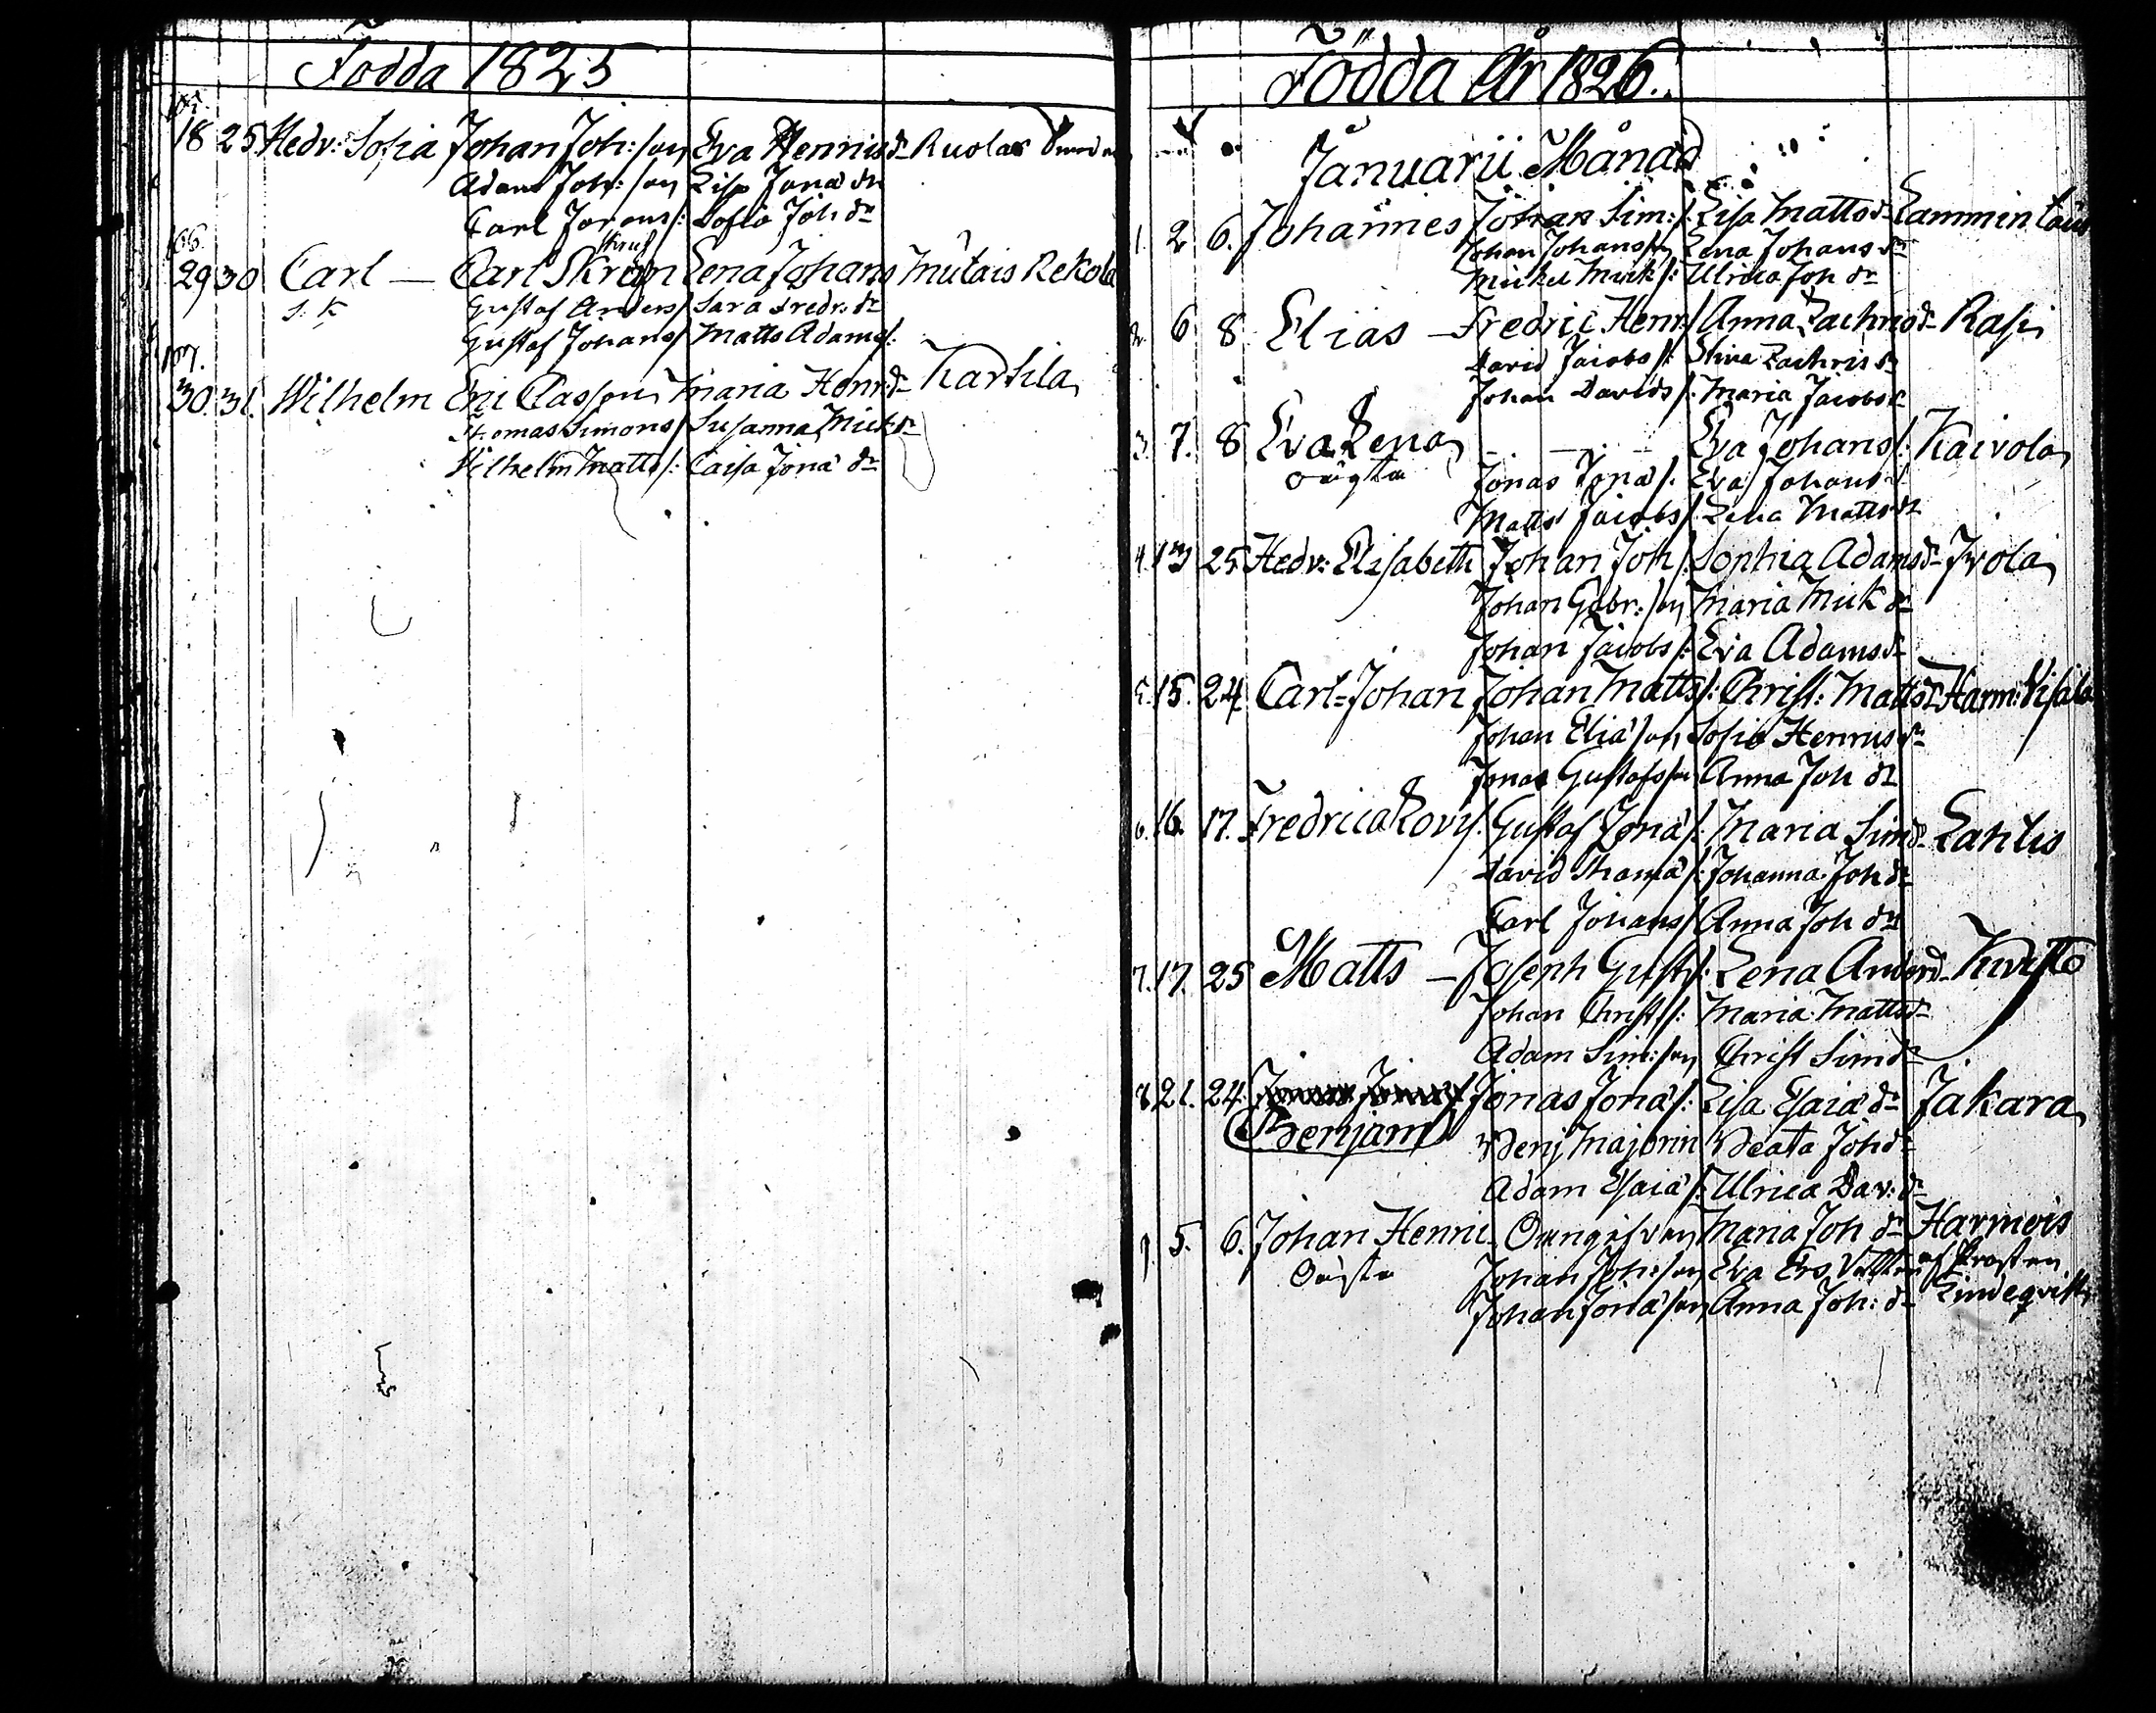 Födda 1825
18 25 Hedv: Sofia Johan Joh:son Eva Henricsdr Ruolax
Adam Joh:son Lisa Jona dr
Carl Jorans/: Sofia Joh dr
66.
29 30 Carl — Carl Lena Johans Mutais Rekola
Gustaf Anders/ Sara Fredr: dr
Gustaf Johans/ Matts Adams/:
30. 31. Wilhelm Eric Classon Maria Henr:dr Karsila
Thomas Simons/ Susanna Mick dr
Wilhelm Matts/: Caisa Jona dr
Födda År 1826.
Januarii Månad
1. 2 6. Johannes Johan Sim:/. Lisa Mattsdr Lammin
Johan Johanson Lena Johans dr
Mickel Mick/: Ulrica Joh dr
2. 6 8 Elias — Fredric Henr:/ Anna Zachrisdr Rasi
David Jacobs/: Stina Zachris dr
Johan Davids/. Maria Jacobsdr
3. 7. 8 Eva Lena — Eva Johans/: Kaivola
oägta Jonas Jona/. Eva Johans/:
Matts Jacobs/. Lena Matts dr
4. 13 25 Hedv: Elisabeth Johan Joh/. Sophia Adamsdr Ivola
Johan Gabr:son Maria Mick dr
Johan Jacobs/: Eva Adamsdr
5. 15. 24 Carl=Johan Johan Matts/: Christ: Mattsdr Harm:
Johan Elia son Sofia Henricsdr
Jonas Gustafsson Anna Joh dr
6. 16. 17. Fredrica Lovis. Gustaf Jona/: Maria Simdr Lahtis
David Thoma/: Johanna Joh dr
Carl Johans/ Anna Joh dr
7. 17. 25 Matts — Joseph Gust/: Lena Andersdr Kvisto
Johan Christ/: Maria Mattsdr
Adam Sim:son Christ Simdr
8 21. 24. Jonas Jona/: Lisa Esaia dr Jakara
Benjam Benj Majorin Beata Joh dr
Adam Esaia/: Ulrica Dav: dr
9. 5. 6. Johan Henric Oungifvan Maria Joh dr Harmois
Oägta Johan Joh:son Eva Ers af Prosten
Johan Jona son Anna Joh: dr Lindeqvist